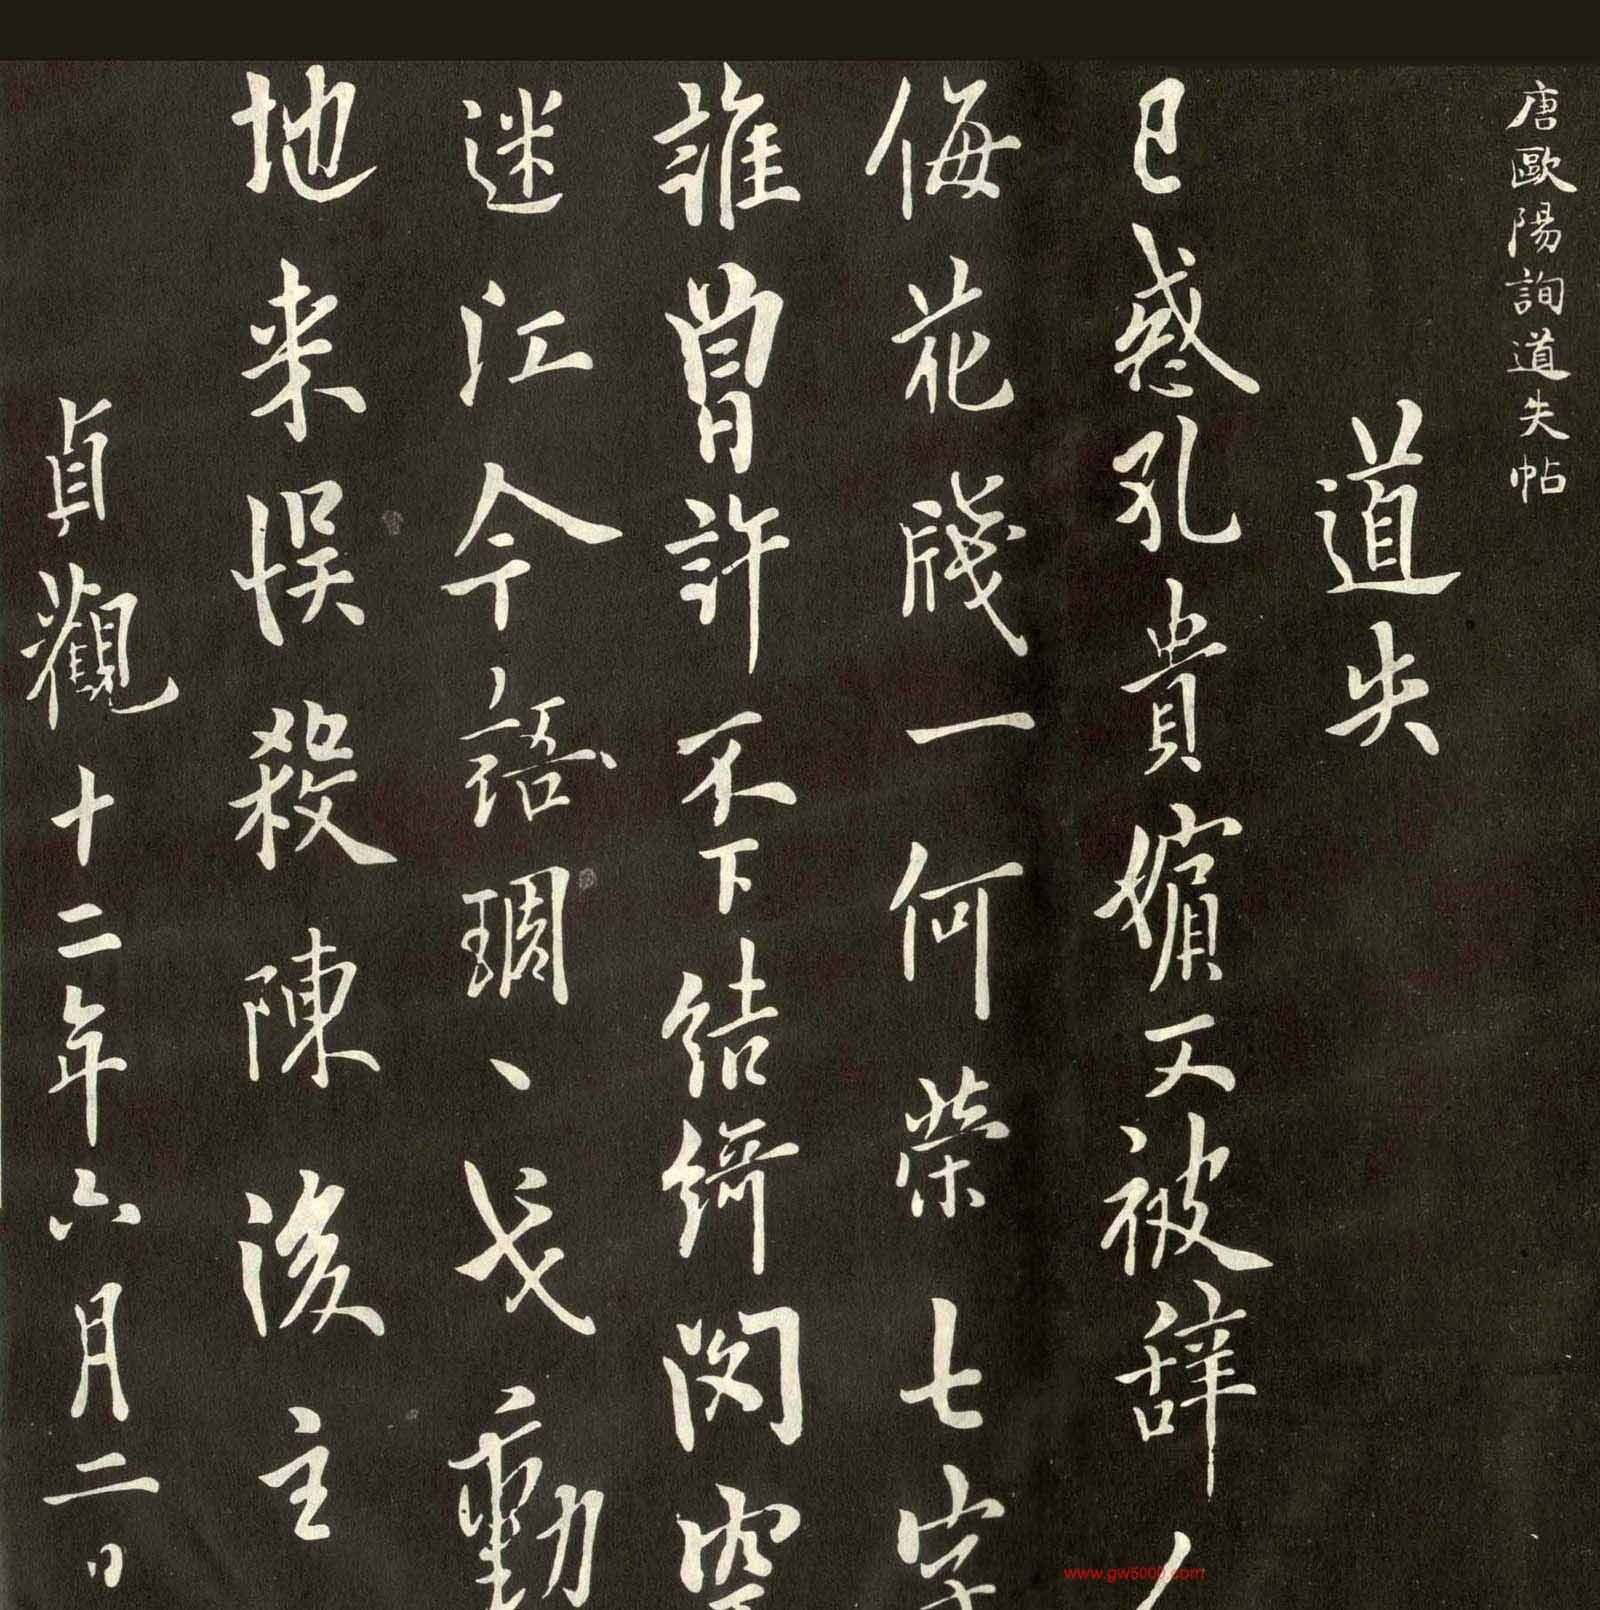 唐歐陽詢道失帖
道失
已惑孔貴嬪又被辞人
侮花牋一何榮七字
誰曾許不下結綺閣空
迷江今語琱丶戈動
地来悮殺陳後主
貞觀十二年六月二日
www.gw5000.com